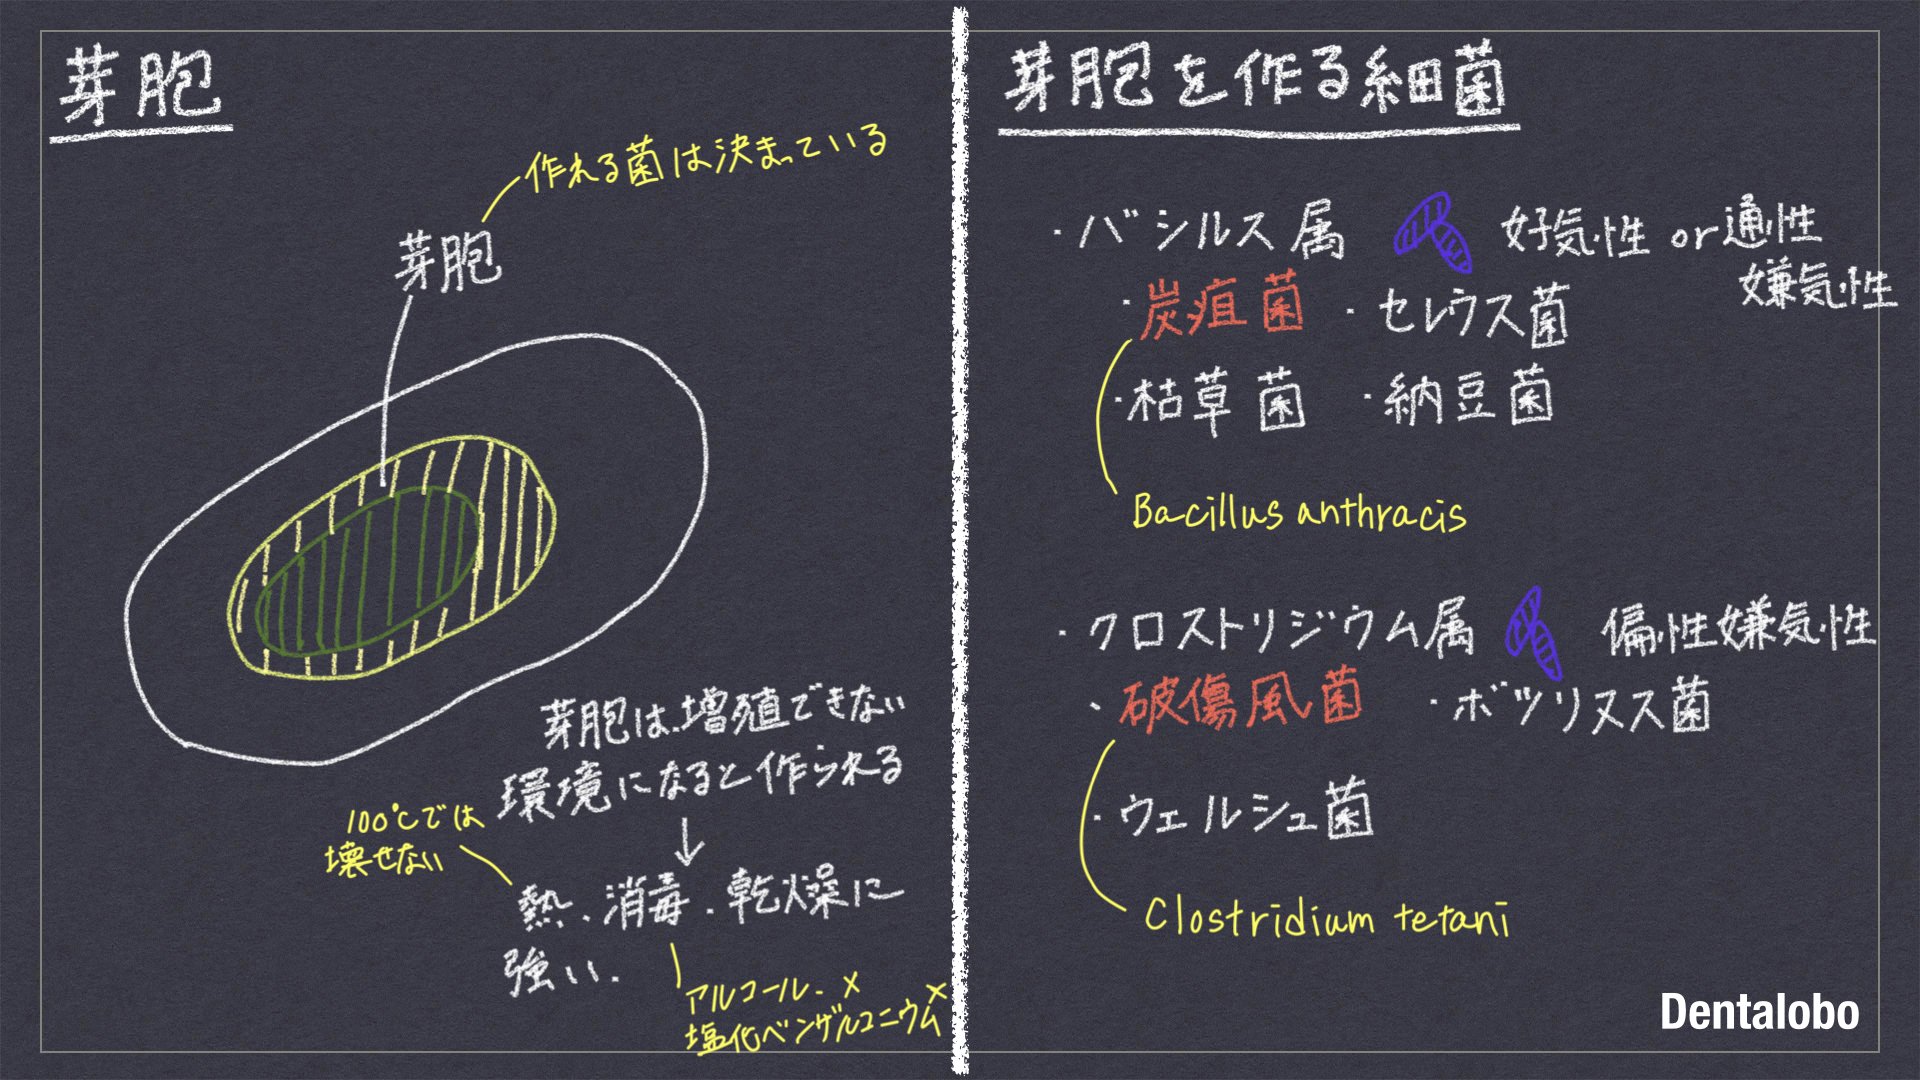 芽胞
作れる菌は決まっている
芽胞
芽胞は増殖できない
環境になると作られる
↓
100℃では
壊せない
熱、消毒、乾燥に
強い.
アルコール. ×
塩化ベンザルコニウム ×
芽胞を作る細菌
・バシルス属 好気性 or 通性
嫌気性
・炭疽菌 ・セレウス菌
・枯草菌 ・納豆菌
Bacillus anthracis
・クロストリジウム属 偏性嫌気性
・破傷風菌 ・ボツリヌス菌
・ウェルシュ菌
Clostridium tetani
Dentalobo